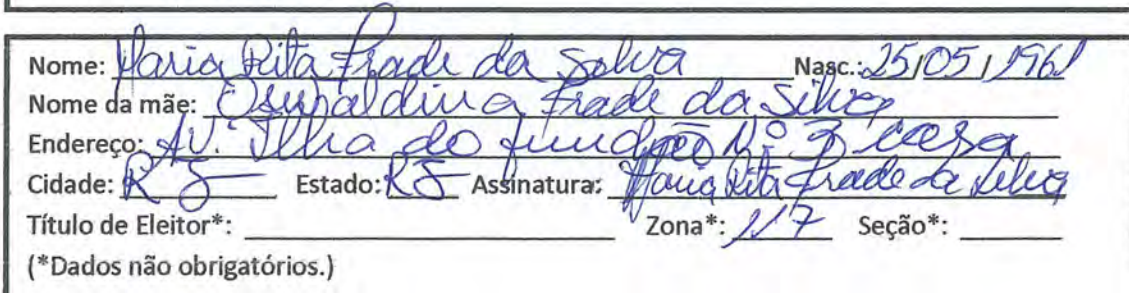 Nome: Maria Rita Frade da Solva Nasc.: 25/05/1961
Nome da mãe: Osvaldina Frade da Silva
Endereço: AV. Ilha do fundão Nº 3 casa
Cidade: RJ Estado: RJ Assinatura: Maria Rita Frade da Silva
Título de Eleitor*: Zona*: 117 Seção*:
(*Dados não obrigatórios.)